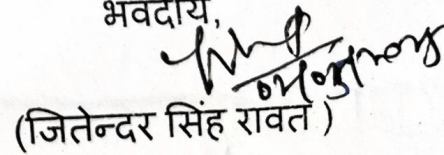 भवदीय,
(जितेन्दर सिंह रावत )